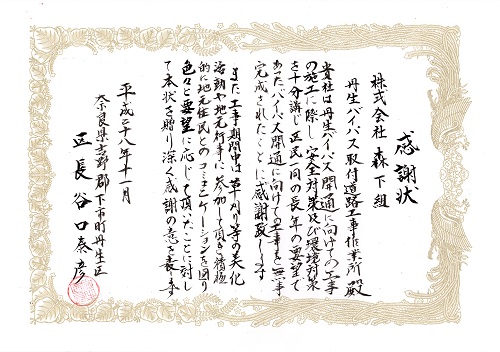 感謝状
株式会社 森下組
丹生バイパス取付道路工事作業所 殿
貴社は丹生バイパス開通に向けての工事
の施工に際し安全対策及び環境対策
を十分講じ区民一同の長年の要望で
あったバイパス開通に向けての工事を無事
完成されたことに感謝致します
また工事期間中は草刈り等の美化
活動や地元行事に参加して頂き積極
的に地元住民とのコミュニケーションを図り
色々と要望に応じて頂いたことに対し
て本状を贈り深く感謝の意を表します
平成二十八年十一月
奈良県吉野郡下市町丹生区
区長 谷口泰彦